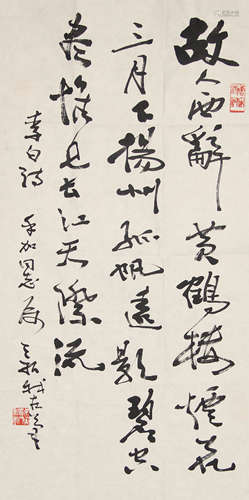 故人西辭黄鶴樓煙花
三月下揚州孤帆遠影碧空
尽惟见长江天際流
李白詩 同志属